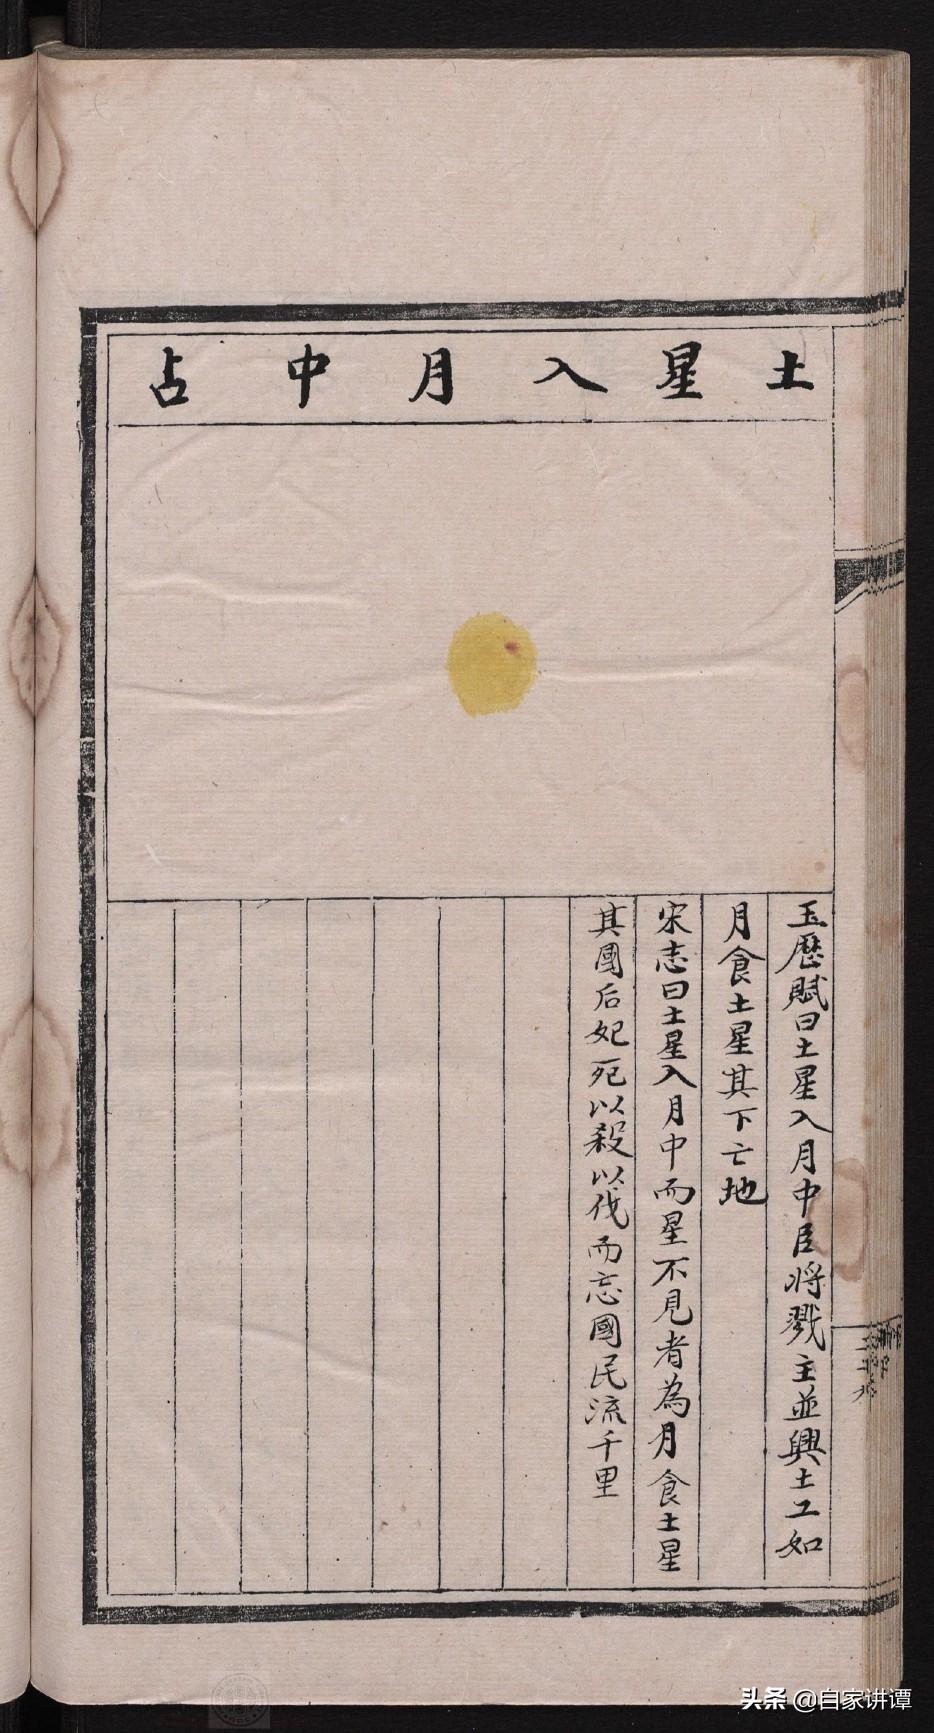 土星入月中占
玉歷賦曰土星入月中臣將戮主並興土工如
月食土星其下亡地
宋志曰土星入月中而星不見者為月食土星
其國后妃死以殺以伐而忘國民流千里
头条 @自家讲谭